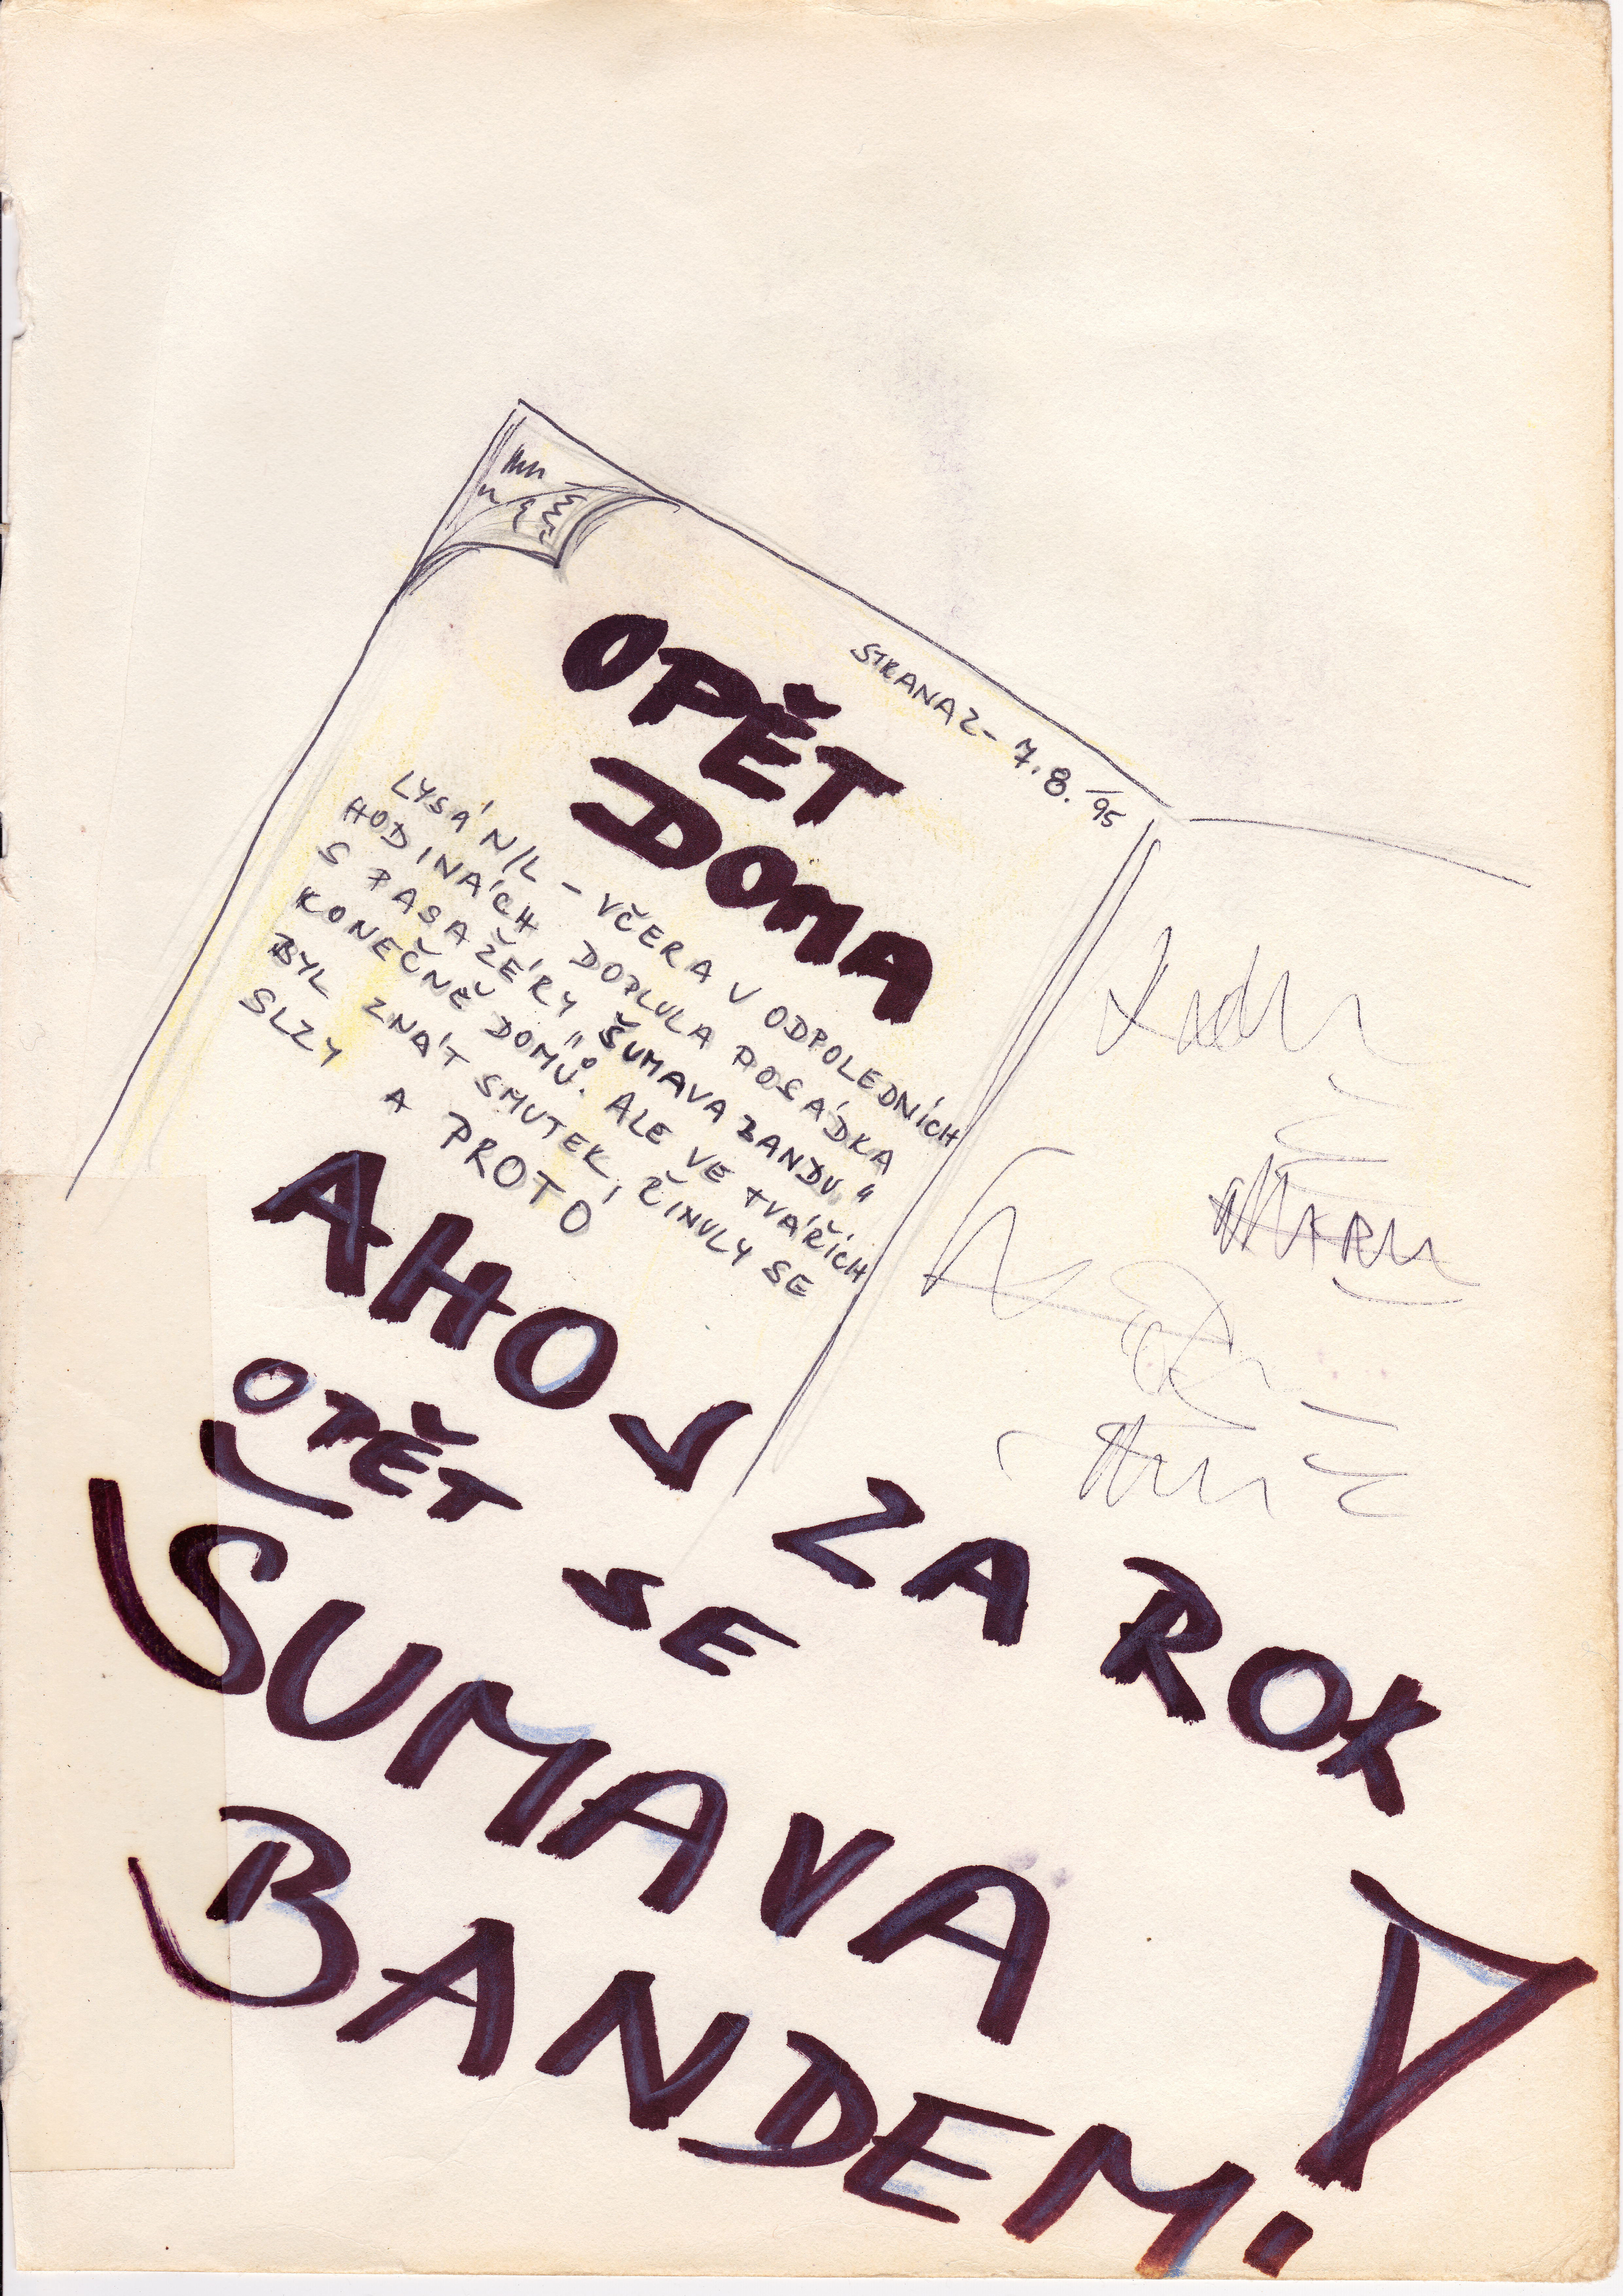 STRANA 2 - 7.8. /95
OPĚT
DOMA
LYSÁ N/L - VČERA V ODPOLEDNÍCH
HODINÁCH DOPLULA POSÁDKA
S PASAŽÉRY "ŠUMAVA BANDU"
KONEČNĚ DOMŮ. ALE VE TVÁŘÍCH
BYL ZNÁT SMUTEK, ŘINULY SE
SLZY
A PROTO
AHOJ ZA ROK
OPĚT SE
ŠUMAVA
BANDEM!